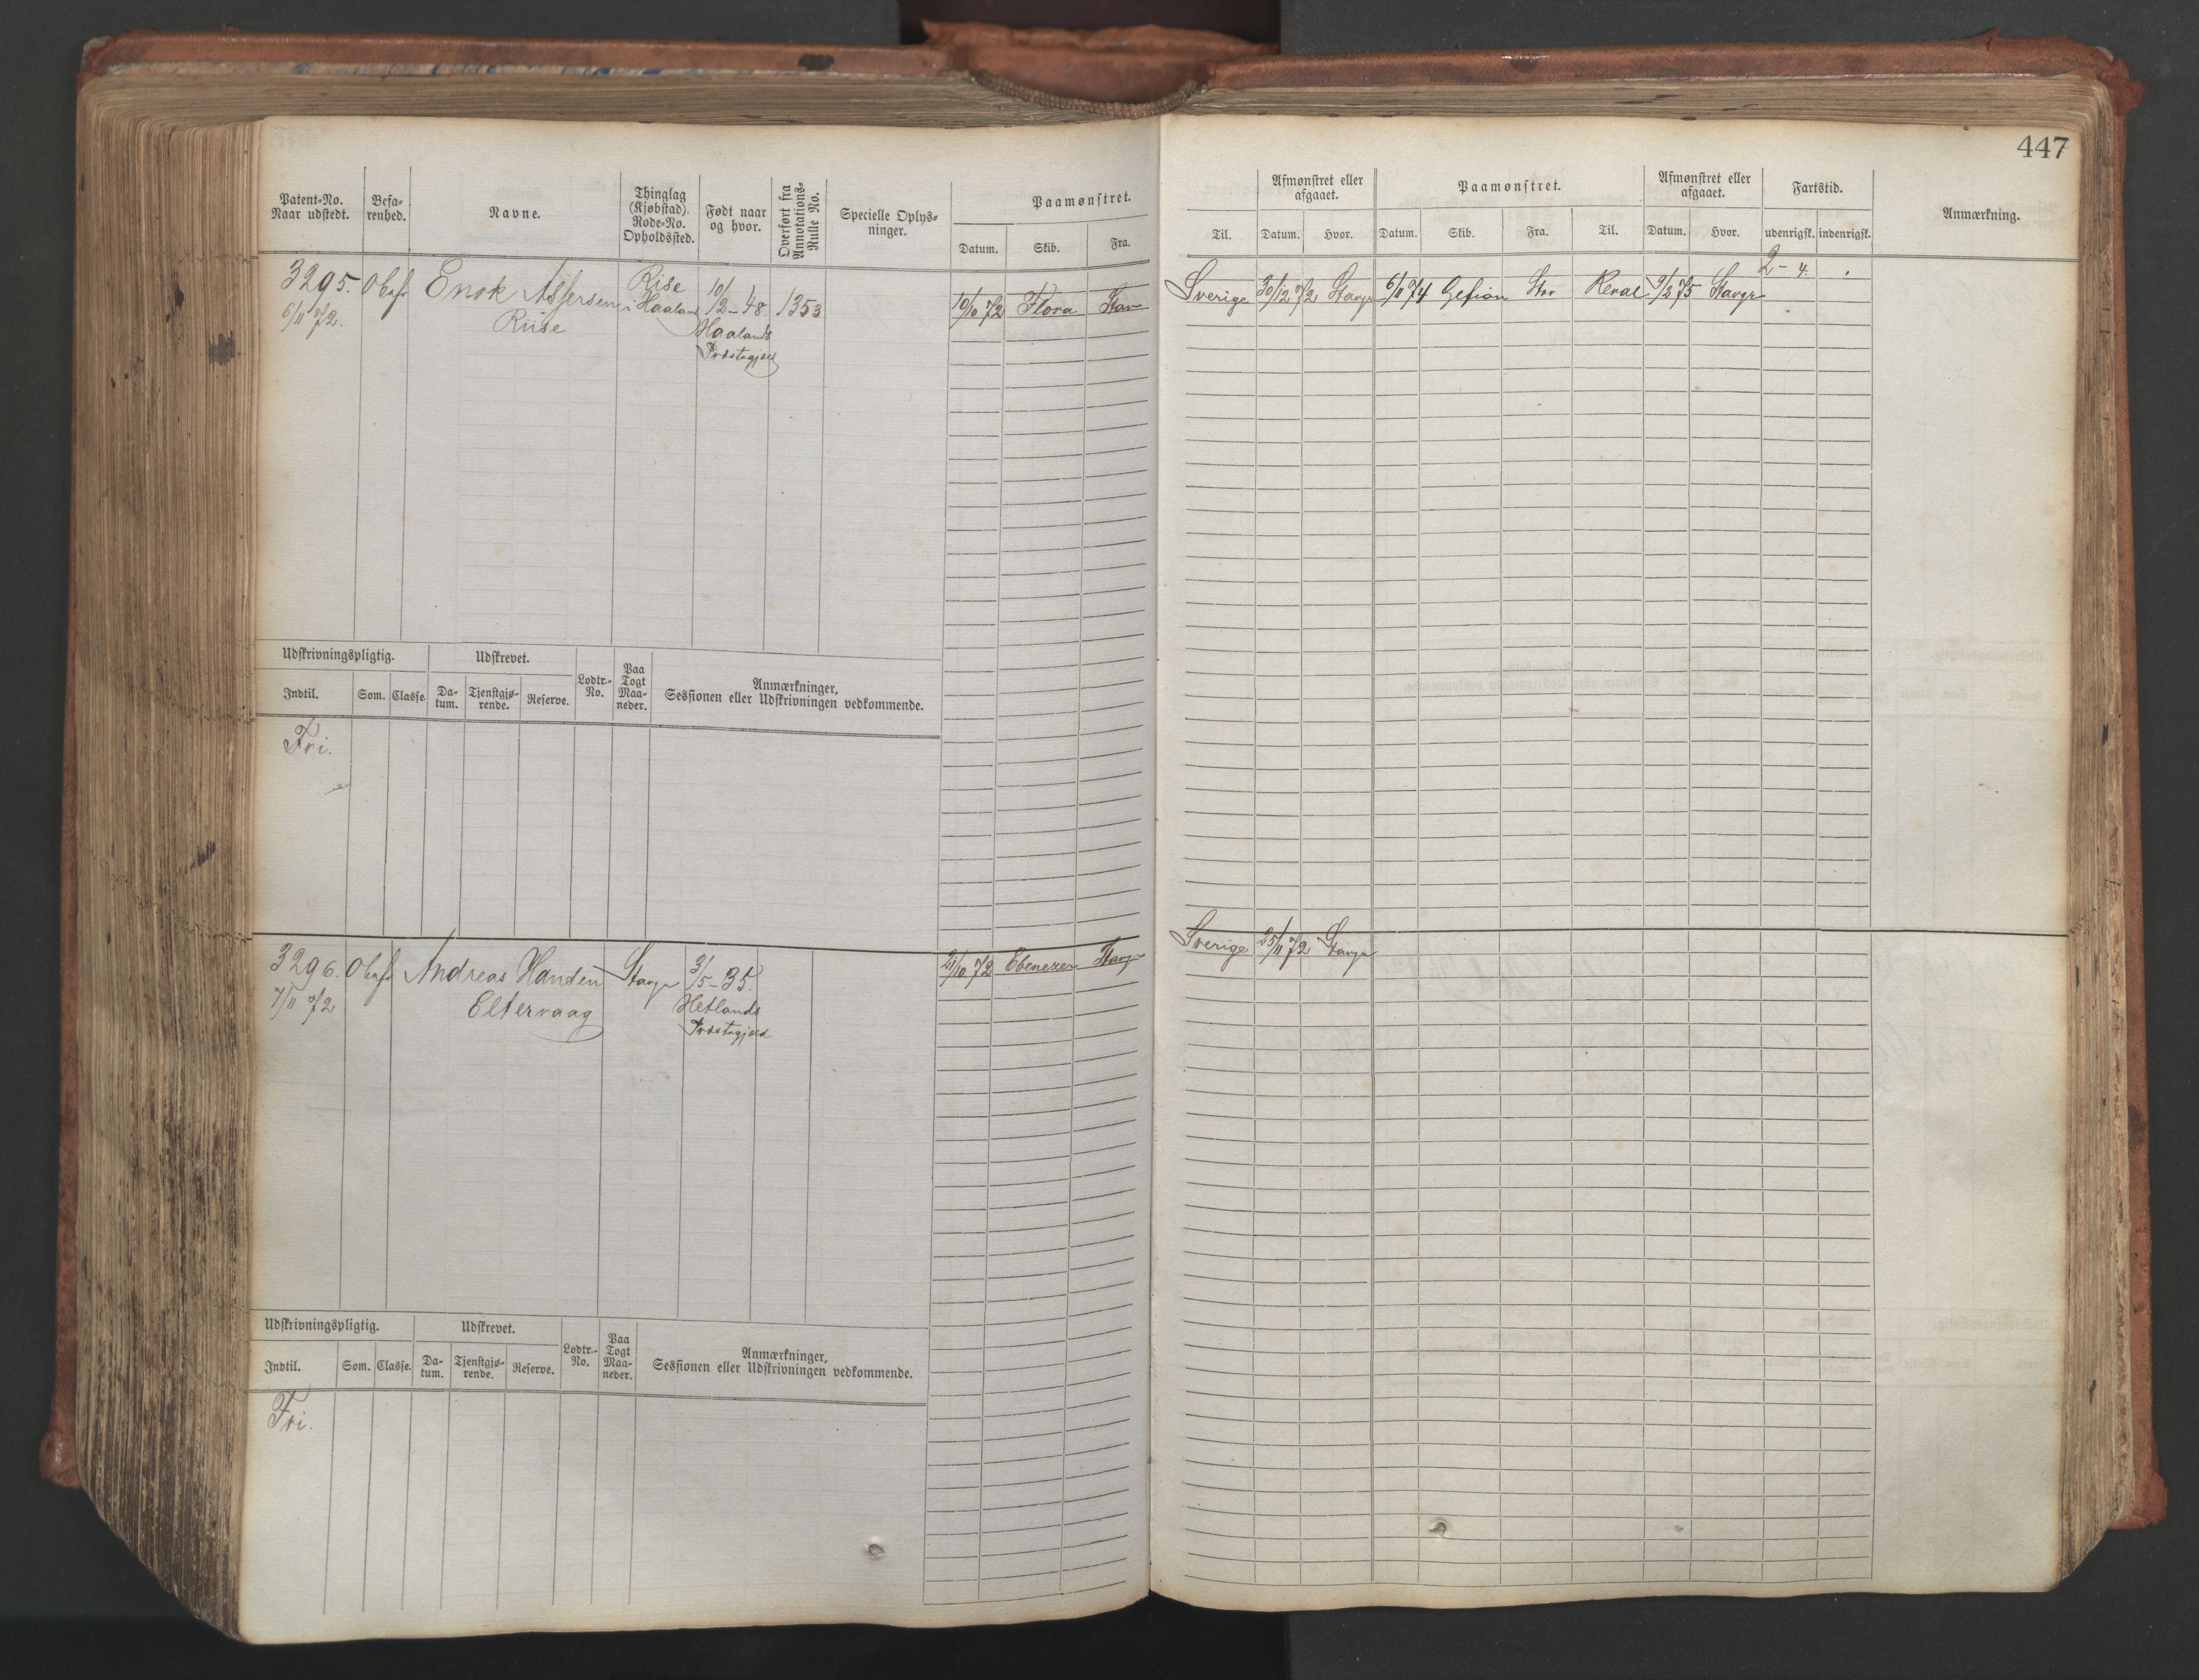 447
Patent-No. Naar udstedt.
Befarenhed.
Navne.
Thinglag (Kjøbstad). Rode-No. Opholdssted.
Født naar og hvor.
Overført fra Annotations-Rulle No.
Specielle Oplys-ninger.
Paamønstret.
Datum. Skib. Fra.
Til.
Afmønstret eller afgaaet.
Datum. Hvor.
Paamønstret.
Datum. Skib. Fra. Til.
Afmønstret eller afgaaet.
Datum. Hvor.
Fartstid.
udenrigsk. indenrigsk.
Anmærkning.
3295. Obefr Enok Assersen Rise 10/12-48. 1353 10/10 72 Flora Stav Sverige 30/12 72 Stavgr 6/11 74 Gefion Stvr Reval 9/2 75 Stavgr 2 - 4.
6/11 72. Riise i Haaland Haalands
Præstegjeld
Udskrivningspligtig. Udskrevet. Lodtr.-No. Paa Togt Maa-neder. Anmærkninger,
Sessionen eller Udskrivningen vedkommende.
Indtil. Som. Classe. Da-tum. Tjenstgjø-rende. Reserve.
Fri.
3296. Obefr Andreas Hansen Stavgr 3/5-35. 21/10 72 Ebenezer Stavgr Sverige 25/11 72 Stavgr
7/11 72 Eltervaag Hetlands
Præstegjeld
Udskrivningspligtig. Udskrevet. Lodtr.-No. Paa Togt Maa-neder. Anmærkninger,
Sessionen eller Udskrivningen vedkommende.
Indtil. Som. Classe. Da-tum. Tjenstgjø-rende. Reserve.
Fri.